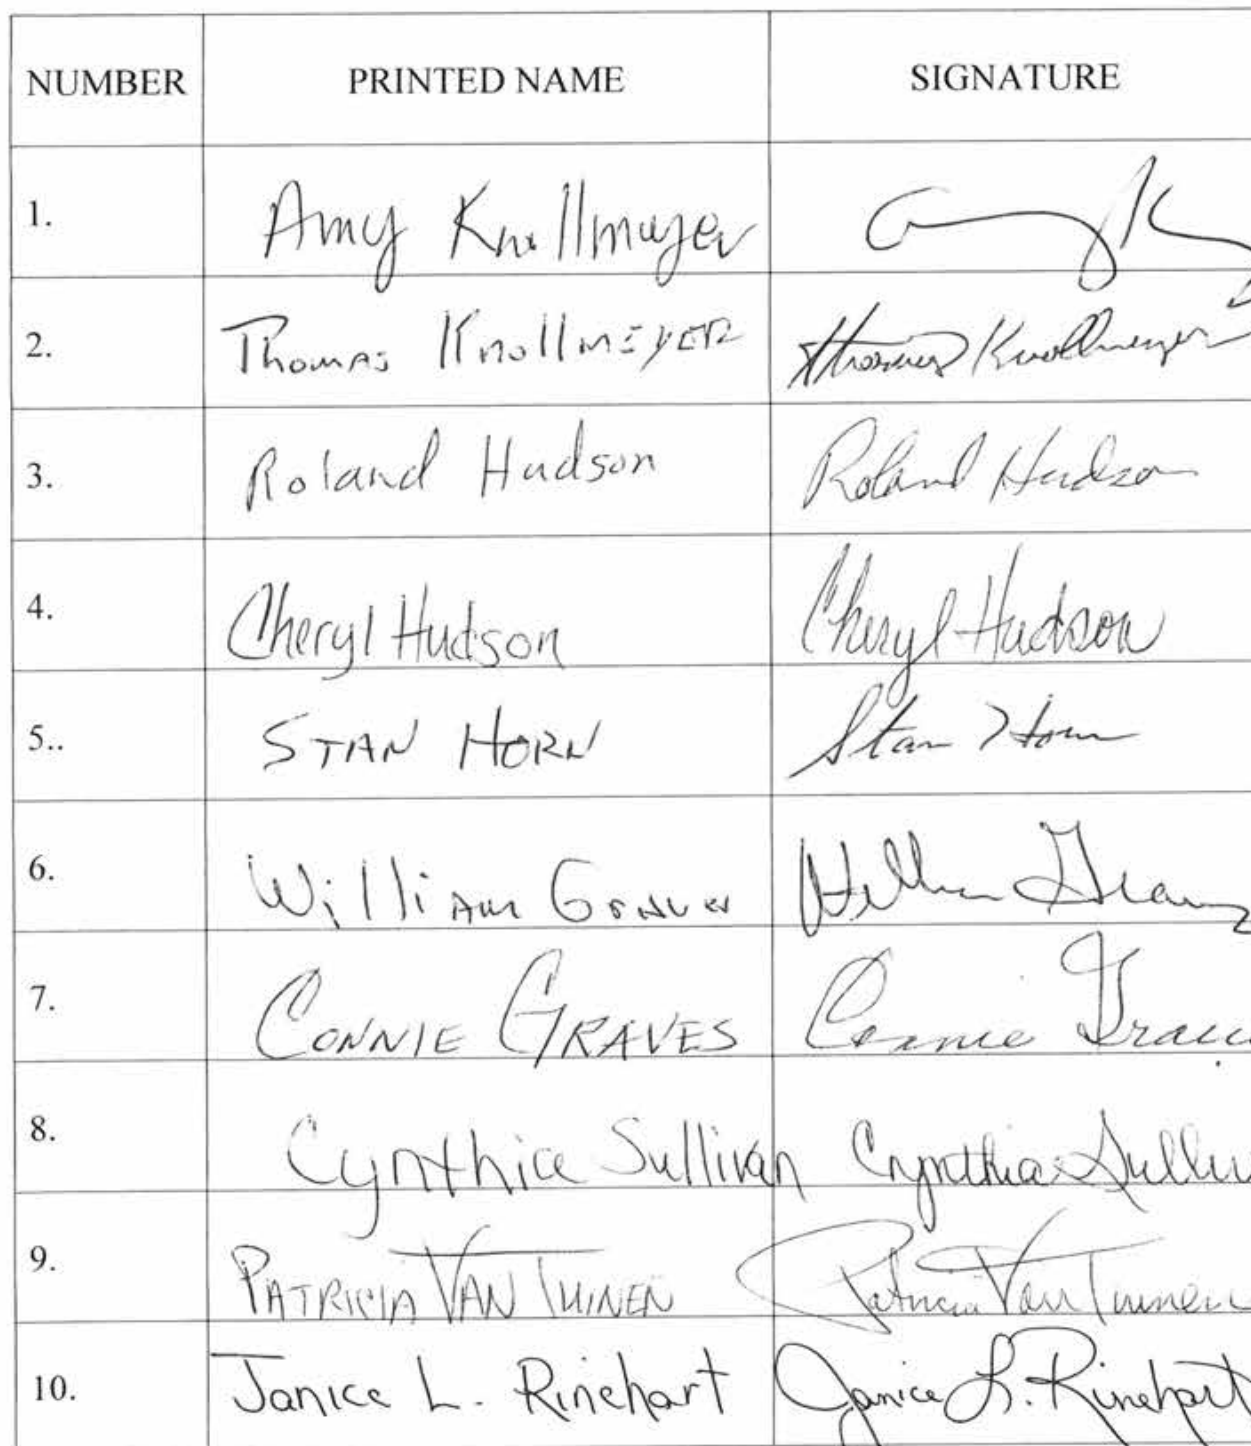 NUMBER PRINTED NAME SIGNATURE
1. Amy Knollmeyer
2. Thomas Knollmeyer Thomas Knollmeyer
3. Roland Hudson Roland Hudson
4. Cheryl Hudson Cheryl Hudson
5.. STAN HORN Stan Horn
6. William
7. CONNIE GRAVES Connie
8. Cynthia Sullivan Cynthia
9. PATRICIA VAN TUINEN Patricia Van Tuinen
10. Janice L. Rinehart Janice L. Rinehart